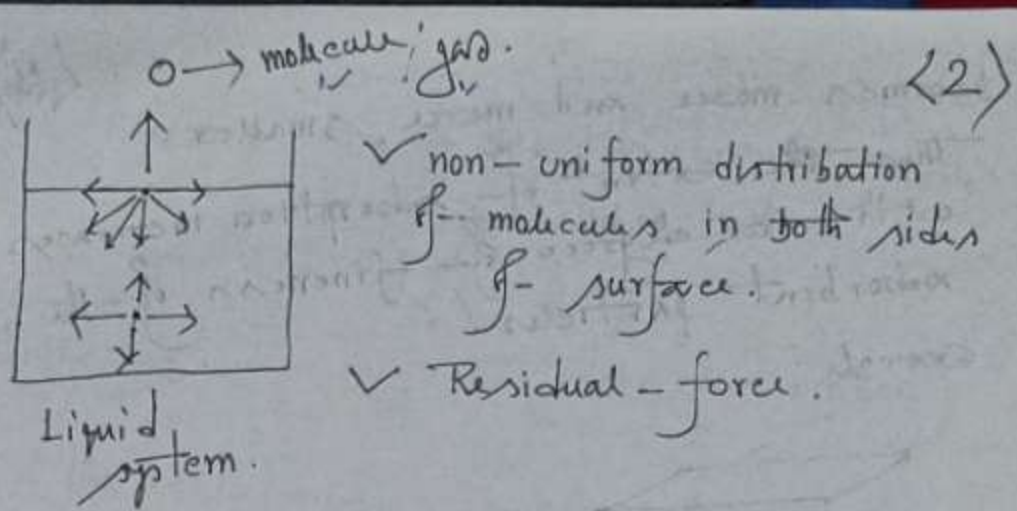 molecule, gas.
<2>
✓ non-uniform distribation
of molecules in both sides
of surface.
✓ Residual-force.
Liquid
system.